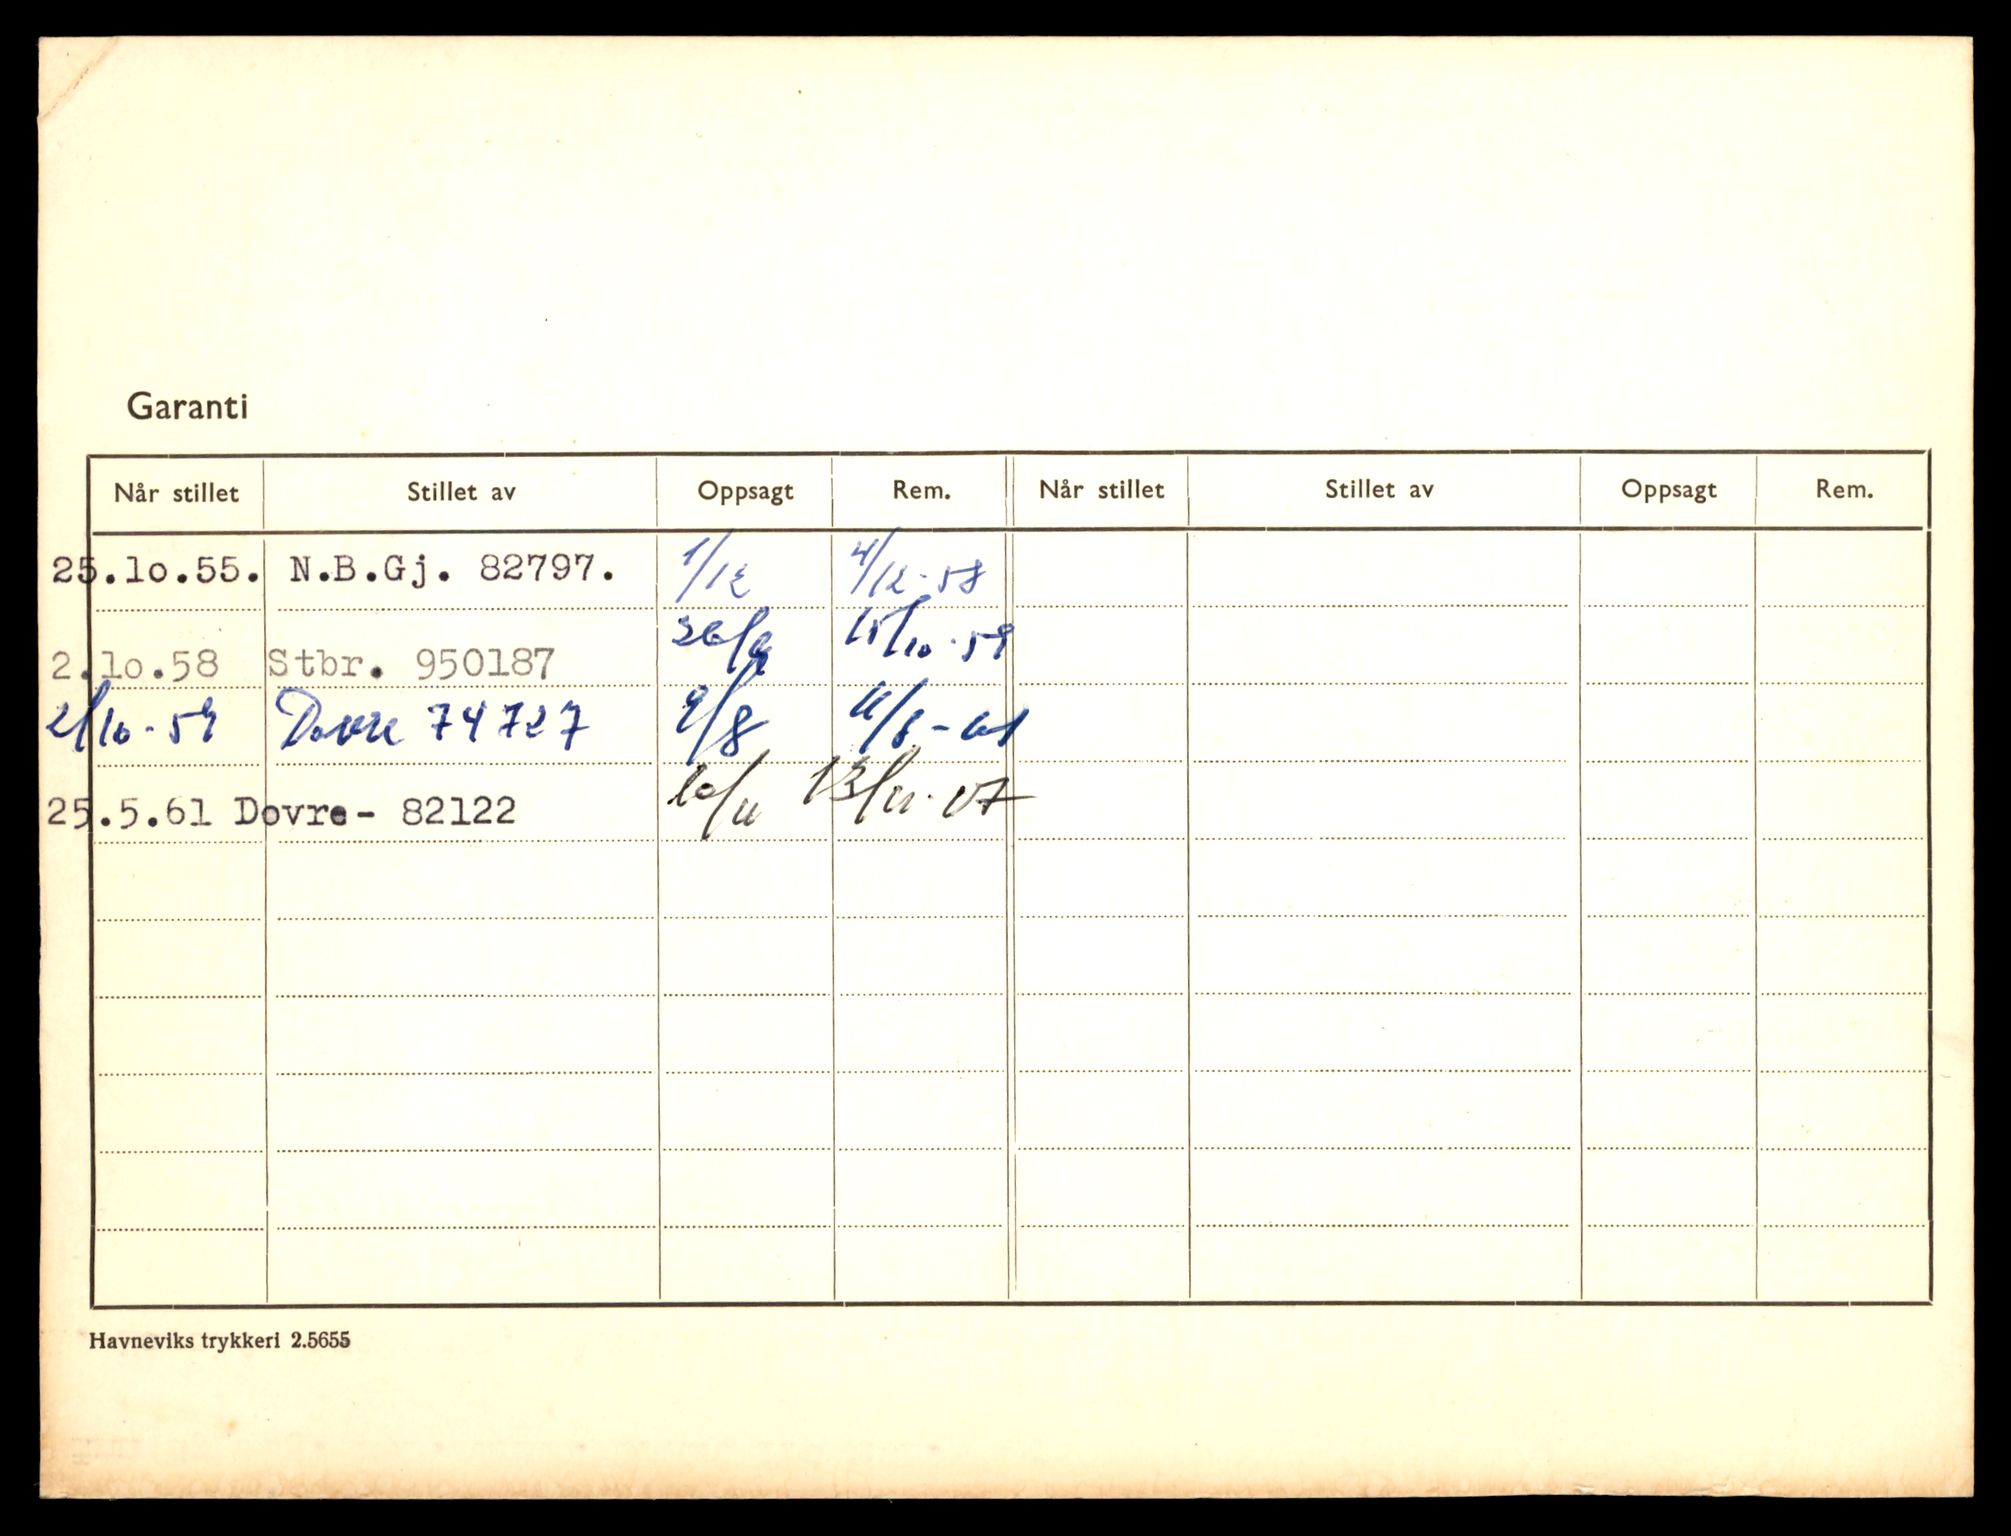 Garanti
Når stillet Stillet av Oppsagt Rem. Når stillet Stillet av Oppsagt Rem.
25.10.55. N.B.Gj. 82797. 1/12 4/12-58
2.10.58 Stbr. 950187 15/10-59
2/10-59 Dovre 74727 9/8
25.5.61 Dovre- 82122 10/11 13/11-
Havneviks trykkeri 2.5655